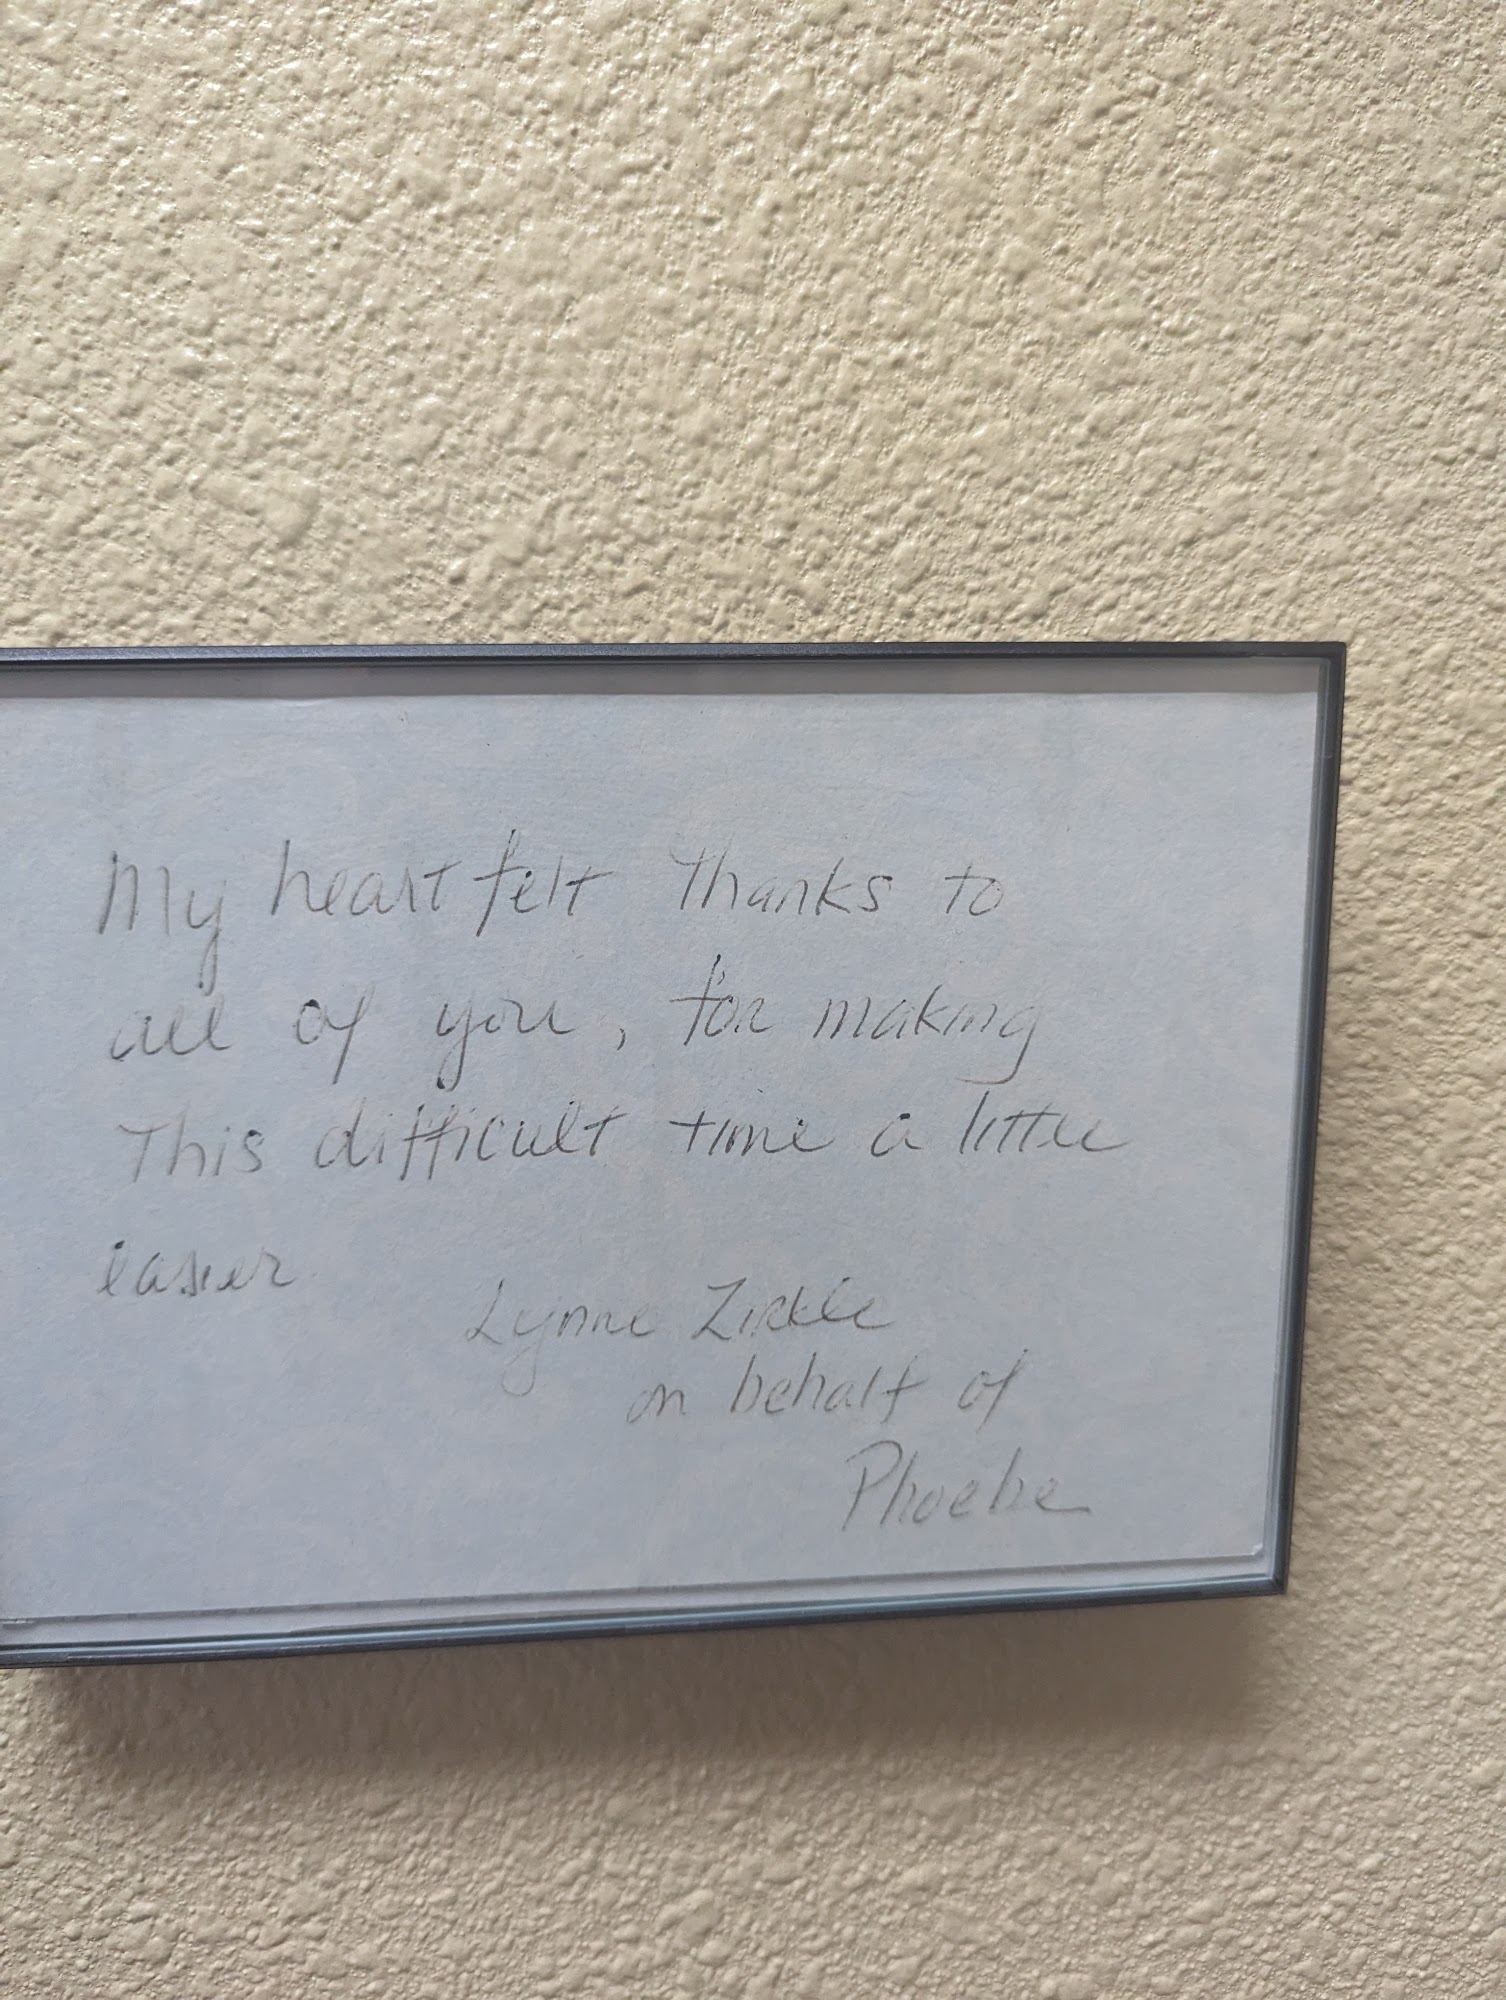 My heart felt Thanks to
all of you, for making
This difficult time a little
easier
Lynne Zirkle
on behalf of
Phoebe